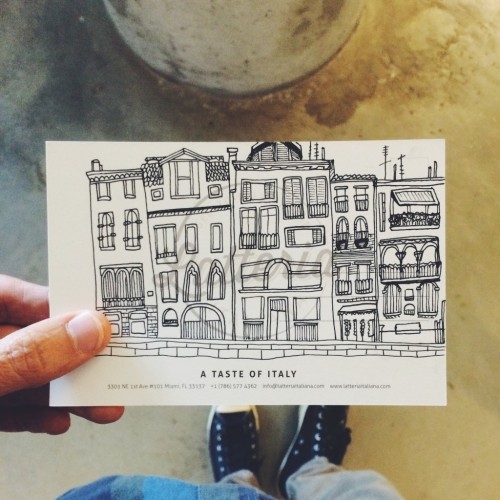 Latteria
A TASTE OF ITALY
3301 NE 1st Ave #101 Miami, FL 33137 +1 (786) 577 4362 info@latteriaitaliana.com www.latteriaitaliana.com